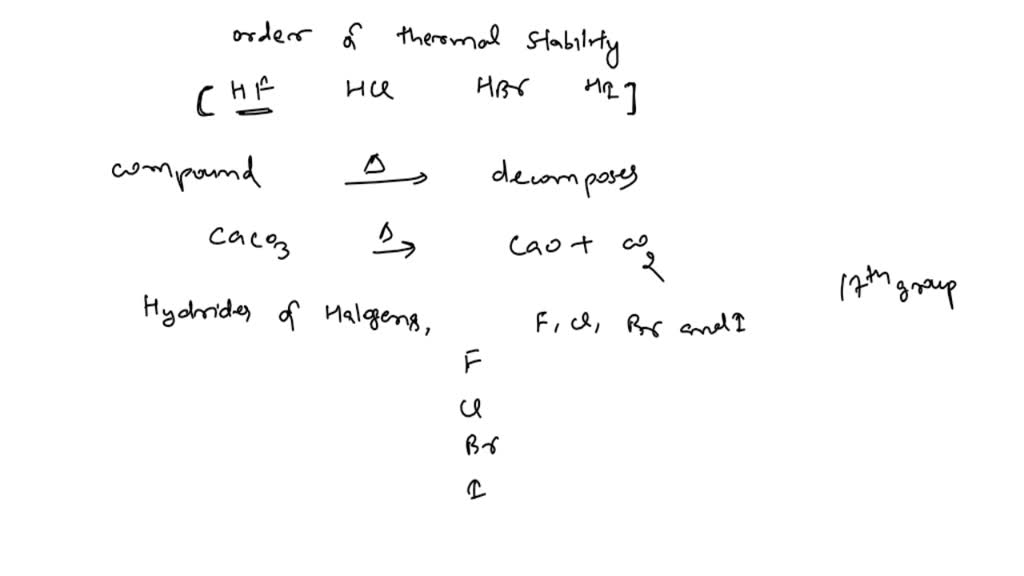 order of thermal stability
[ HF HCl HBr HI ]
compound Δ→ decomposes
CaCO3 Δ→ CaO + CO2
17th group
Hydrides of Halogens, F, Cl, Br and I
F
Cl
Br
I